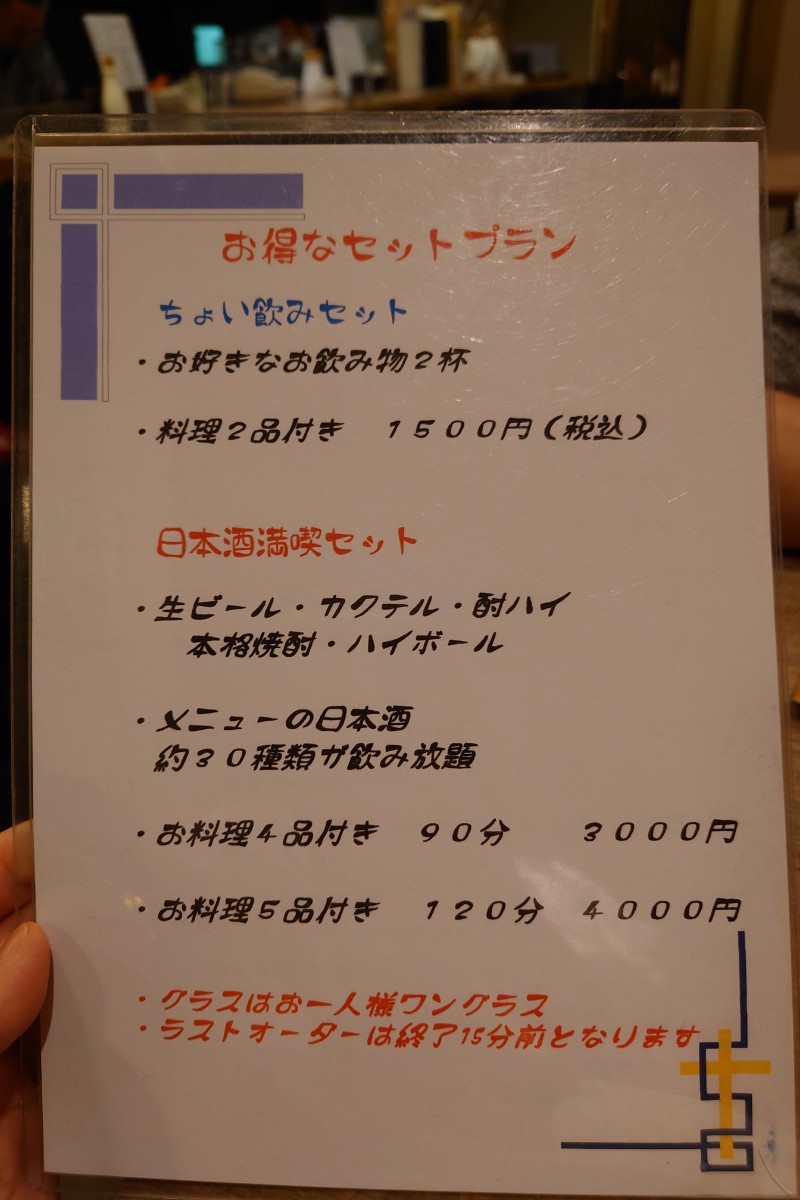 お得なセットプラン
ちょい飲みセット
・お好きなお飲み物２杯
・料理２品付き　１５００円（税込）
日本酒満喫セット
・生ビール・カクテル・酎ハイ
本格焼酎・ハイボール
・メニューの日本酒
約３０種類が飲み放題
・お料理４品付き　９０分　　３０００円
・お料理５品付き　１２０分　４０００円
・グラスはお一人様ワングラス
・ラストオーダーは終了15分前となります